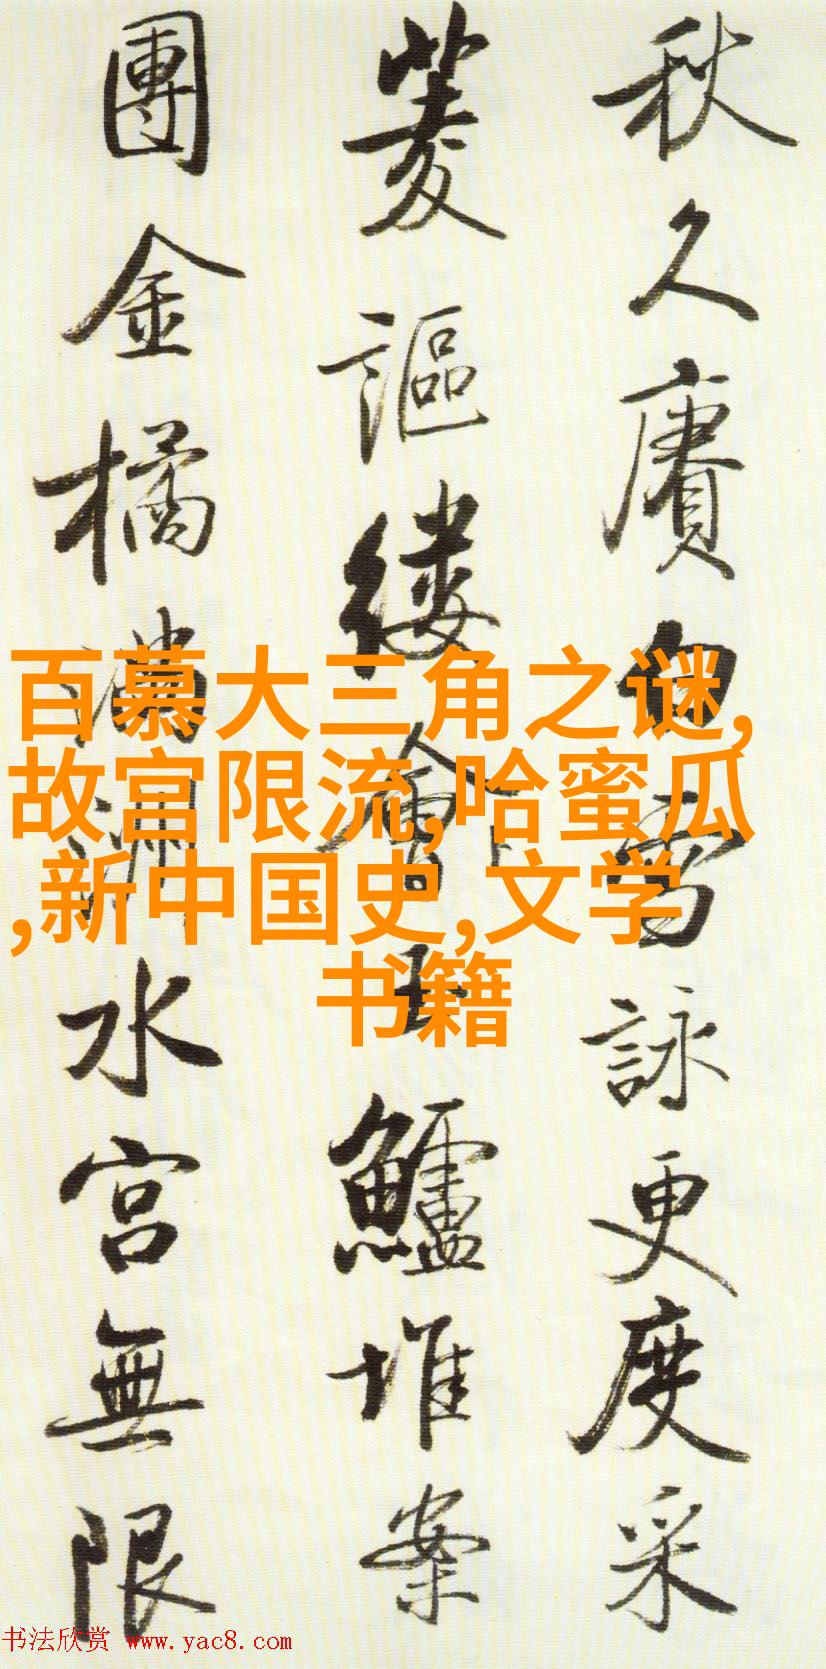 秋久賡白雪詠更度采
菱謳縷會玉鱸堆案
團金橘滿洲水宮無限
百慕大三角之谜,
故宫限流,哈蜜瓜
,新中国史,文学
书籍
书法欣赏 www.yac8.com